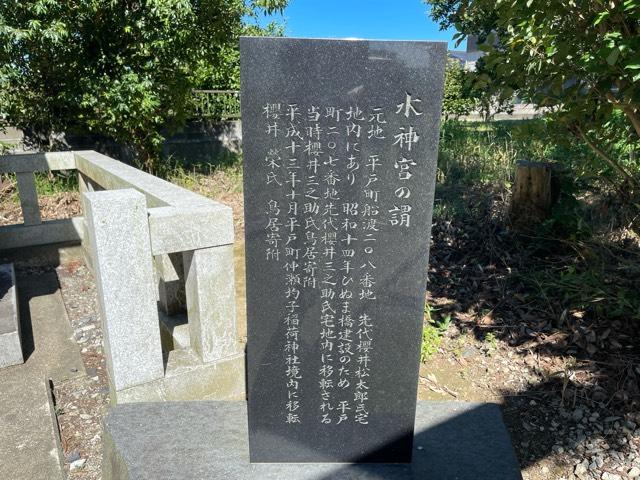 水神宮の謂
元地　平戸町船渡二〇八番地　先代櫻井松太郎氏宅
地内にあり　昭和十四年ひぬま橋建設のため　平戸
町二〇七番地先代櫻井三之助氏宅地内に移転される
当時櫻井三之助氏鳥居寄附
平成十三年十月平戸町仲瀬均子稲荷神社境内に移転
櫻井　栄氏　鳥居寄附